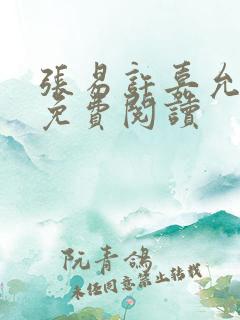 張易許嘉允
免費閱讀
阮青鴿
未经同意禁止转载